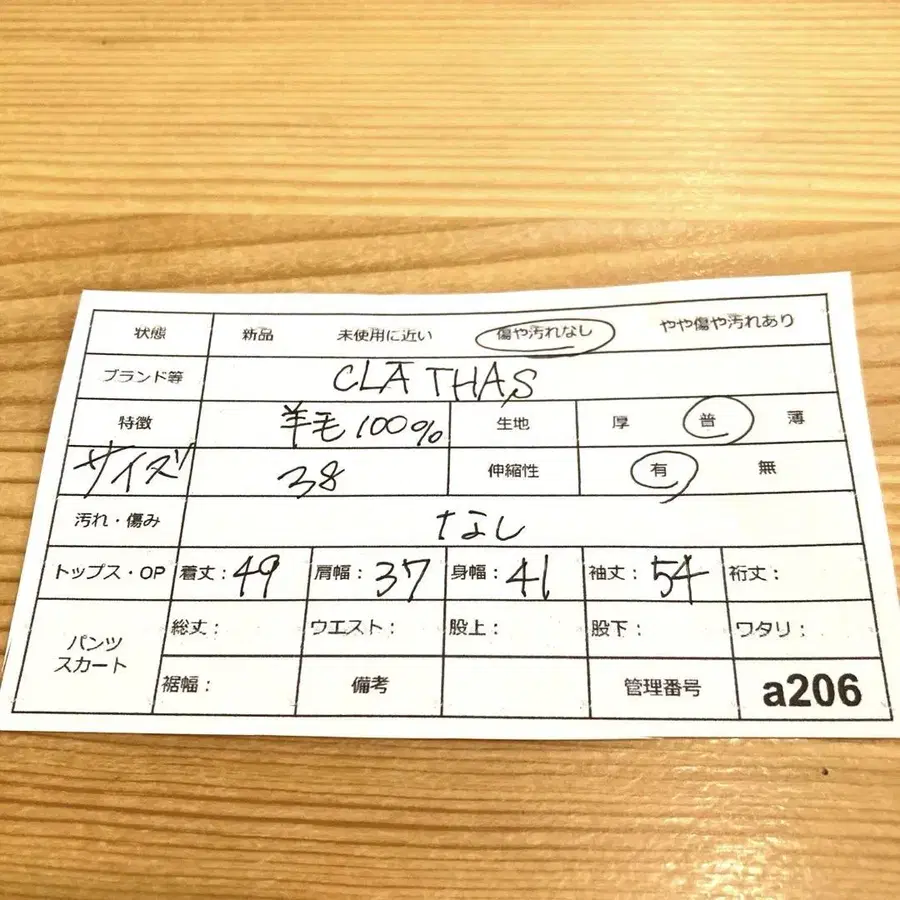 状態 新品 未使用に近い 傷や汚れなし やや傷や汚れあり
ブランド等 CLATHAS
特徴 羊毛100% 生地 厚 普 薄
サイズ 38 伸縮性 有 無
汚れ・傷み なし
トップス・OP 着丈:49 肩幅:37 身幅:41 袖丈:54 裄丈:
パンツ スカート 総丈: ウエスト: 股上: 股下: ワタリ:
裾幅: 備考 管理番号 a206